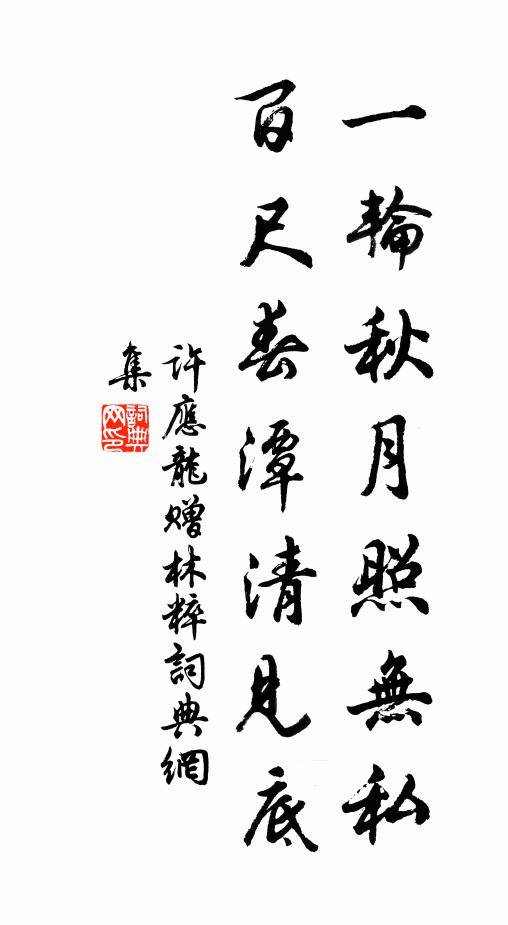 一輪秋月照無私
百尺春潭清見底
許應龍贈林粹詞典網
集
詞典網印